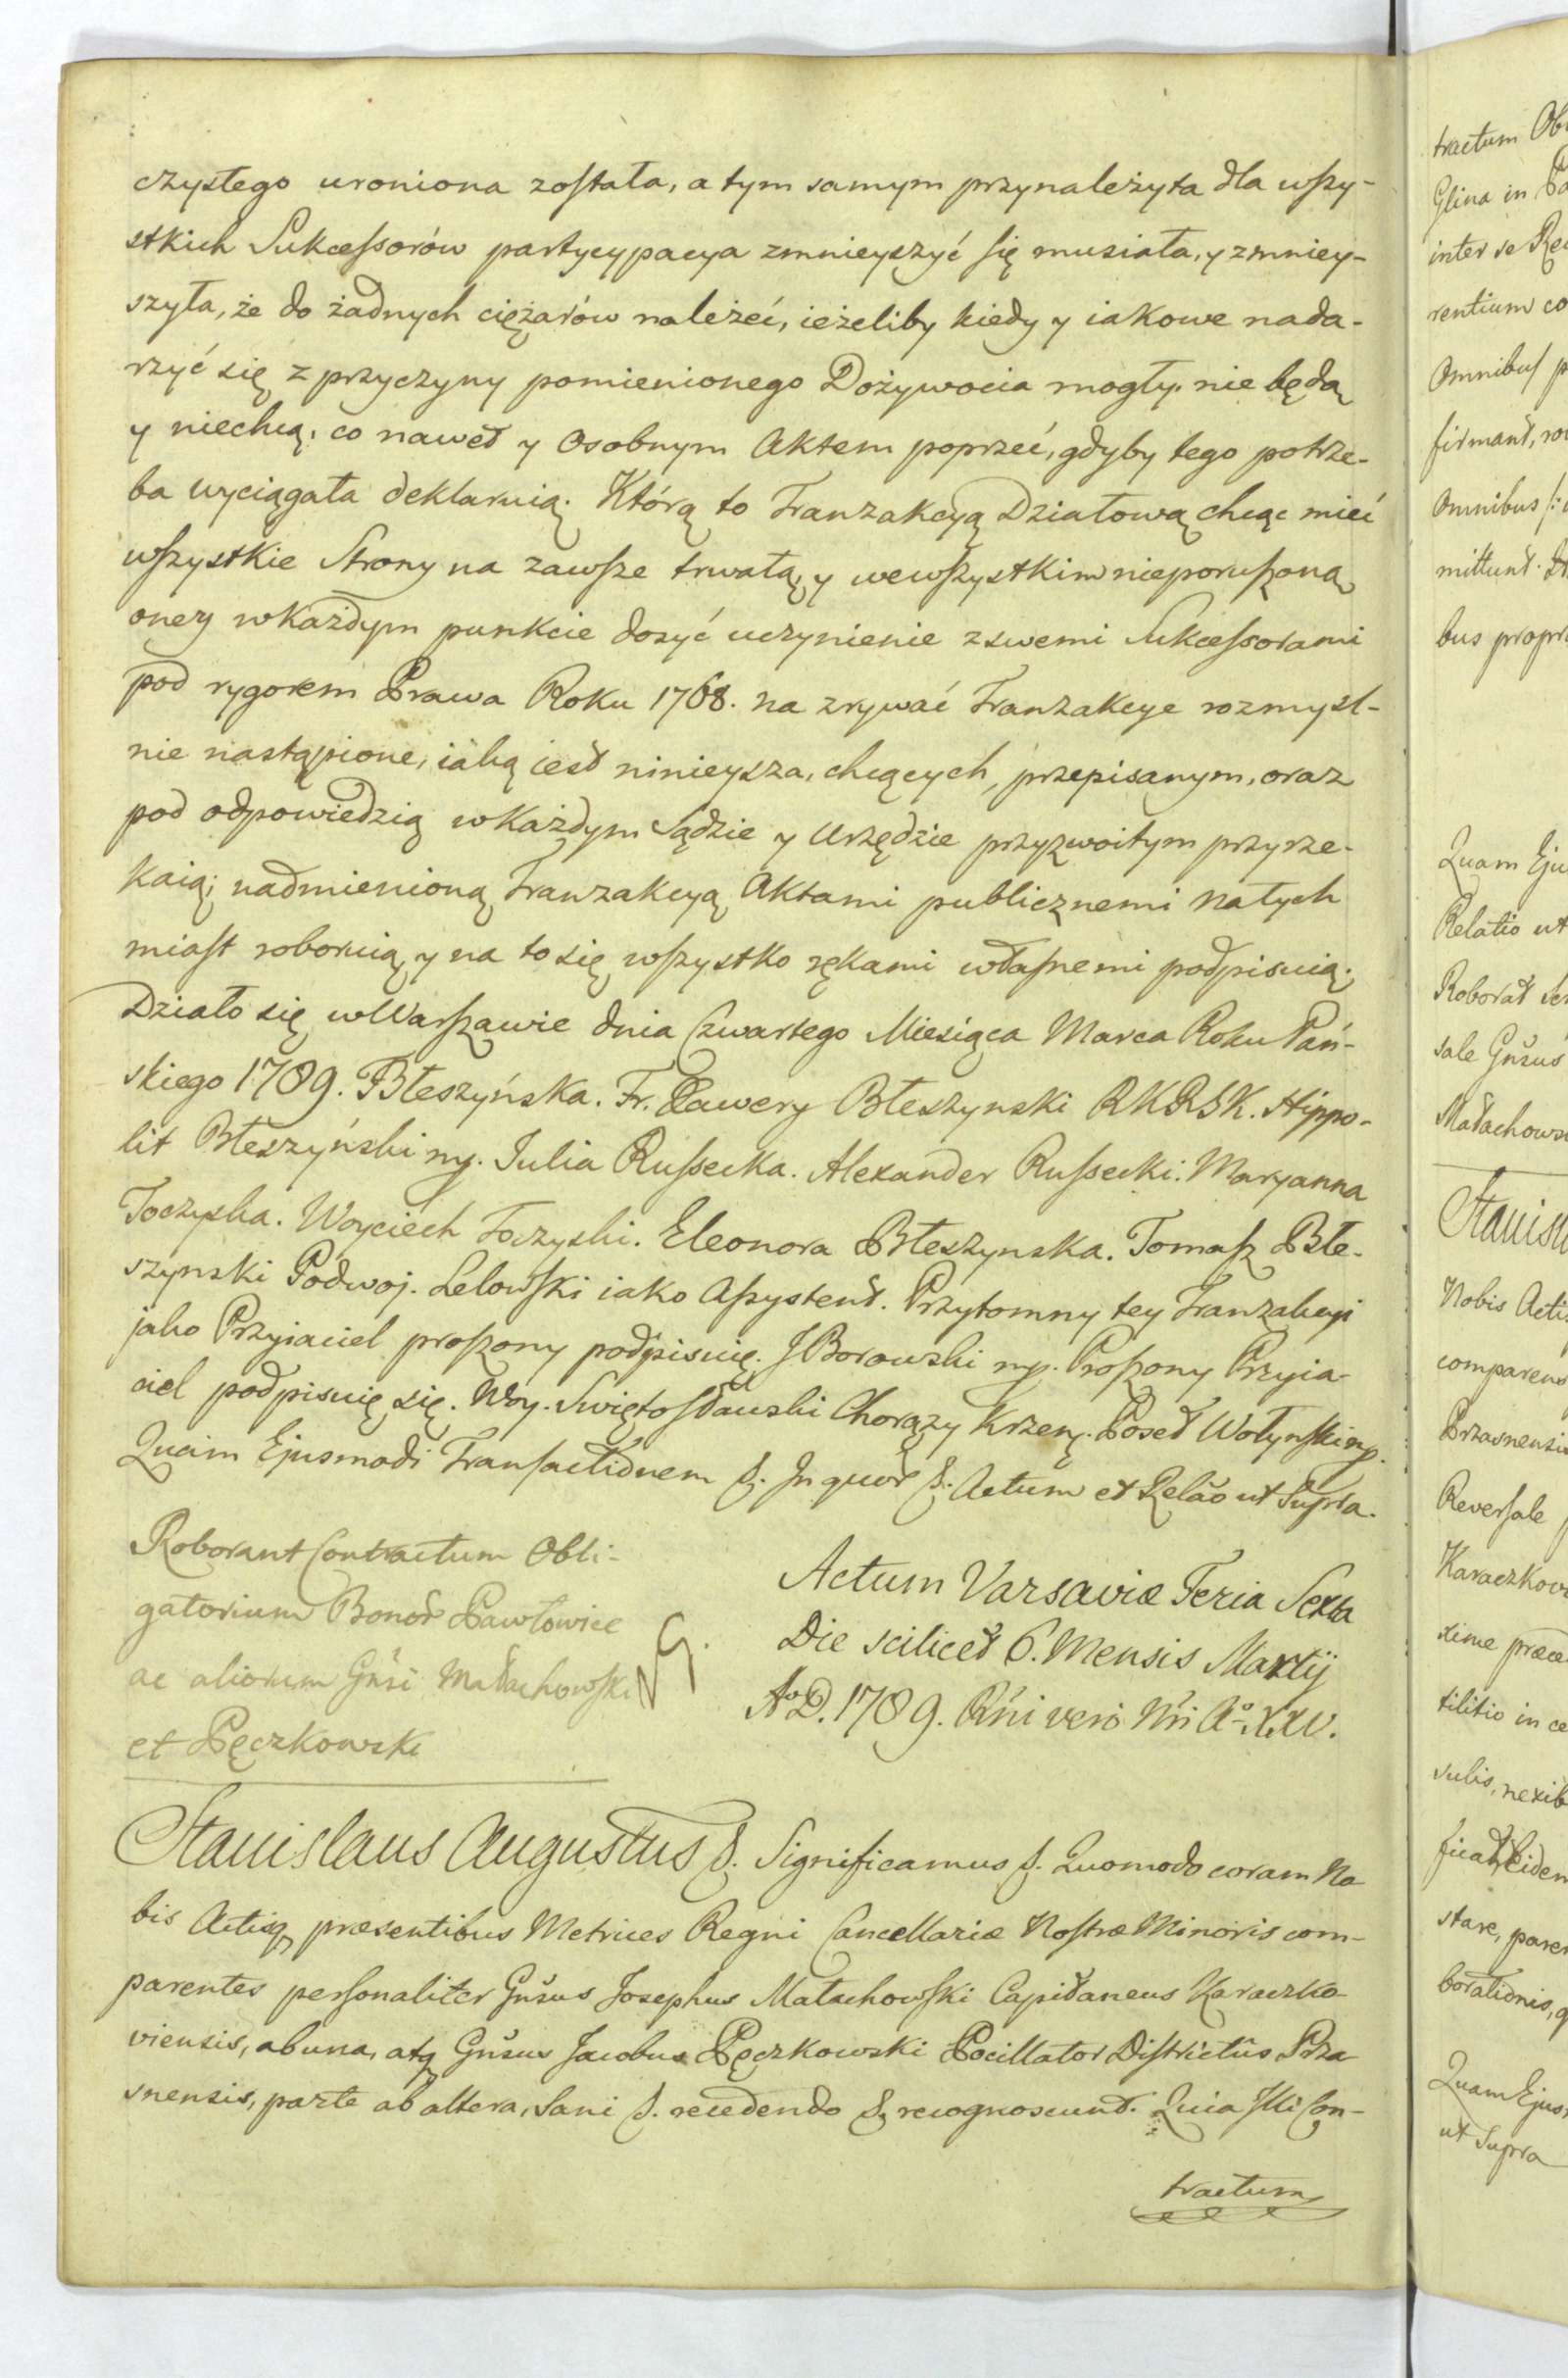 czystego uroniona została, a tym samym przynależyta dla wszy-
stkich Sukcessorów partycypacya zmnieyszyć się musiała, y zmniey-
szyła, że do żadnych ciężarów należeć, ieżeliby kiedy y iakowe nada-
rzyć się z przyczyny pomienionego Dożywocia mogły. nie będą
y niechcą, co nawet y Osobnym Aktem poprzeć, gdyby tego potrze-
ba wyciągała deklaruią. Którą to Tranzakcyą Działową chcąc mieć
wszystkie Strony na zawsze trwałą, y wewszystkim nieporuszoną
oney wkażdym punkcie dosyć uczynienie zswemi Sukcessorami
pod rygorem Prawa Roku 1768. na zrywać Tranzakcye rozmyśl-
nie nastąpione, iaką iest ninieysza, chcących, przepisanym, oraz
pod odpowiedzią wkażdym Sądzie y Urzędzie przyzwoitym przyrze-
kaią; nadmienioną Tranzakcyą Aktami publicznemi natych
miast roboruią, y na to się wszystko rękami własnemi podpisuią.
Działo się wWarszawie dnia Czwartego Miesiąca Marca Roku Pań-
skiego 1789. Błeszyńska. Fr. Xawery Błeszynski RKRSK. Hippo-
lit Błeszyński mp. Julia Russecka. Alexander Russecki. Maryanna
Toczyska. Woyciech Toczyski. Eleonora Błeszynska. Tomasz Błe-
szynski Podwoj. Lelowski iako Assystent. Przytomny tey Tranzakcyi
jako Przyiaciel proszony podpisuię. J Borowski mp. Proszony Przyia-
ciel podpisuię się. Woy. Swiętosławski Chorąży Krzem. Poseł Wołynski mp.
Quam Ejusmodi Transactionem &. In quor &. Actum et Relāo ut Supra.
Roborant Contractum Obli-
gatorium Bonor Pawłowice
ac aliorum Gñsi Małachowski
et Pęczkowski
Actum Varsaviæ Feria Sexta
Die scilicet 6. Mensis Martij
Aº D. 1789. Rñi vero Nri Aº XXV.
Stanislaus Augustus &. Significamus &. Quomodo coram No
bis Actisq præsentibus Metrices Regni Cancellariæ Nostræ Minoris com-
parentes personaliter Gñsus Josephus Małachowski Capitaneus Karaczko
viensis, ab una, atq Gñsus Jacobus Pęczkowski Pocillator Districtûs Prza
snensis, parte ab altera, Sani &. recedendo &. recognoscunt. Quia Illi Con-
tractum
tractum
Glina in
inter se
rentium
Omnibus
firmant,
Omnibus
mittunt.
bus
Quam
Relatio ut
Roborat
sale Gñsus
Nobis
comparens
Quam
ut Supra